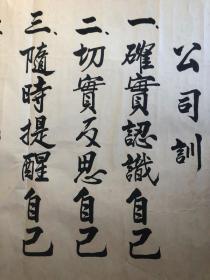 公司訓
一、確實認識自己
二、切實反思自己
三、隨時提醒自己